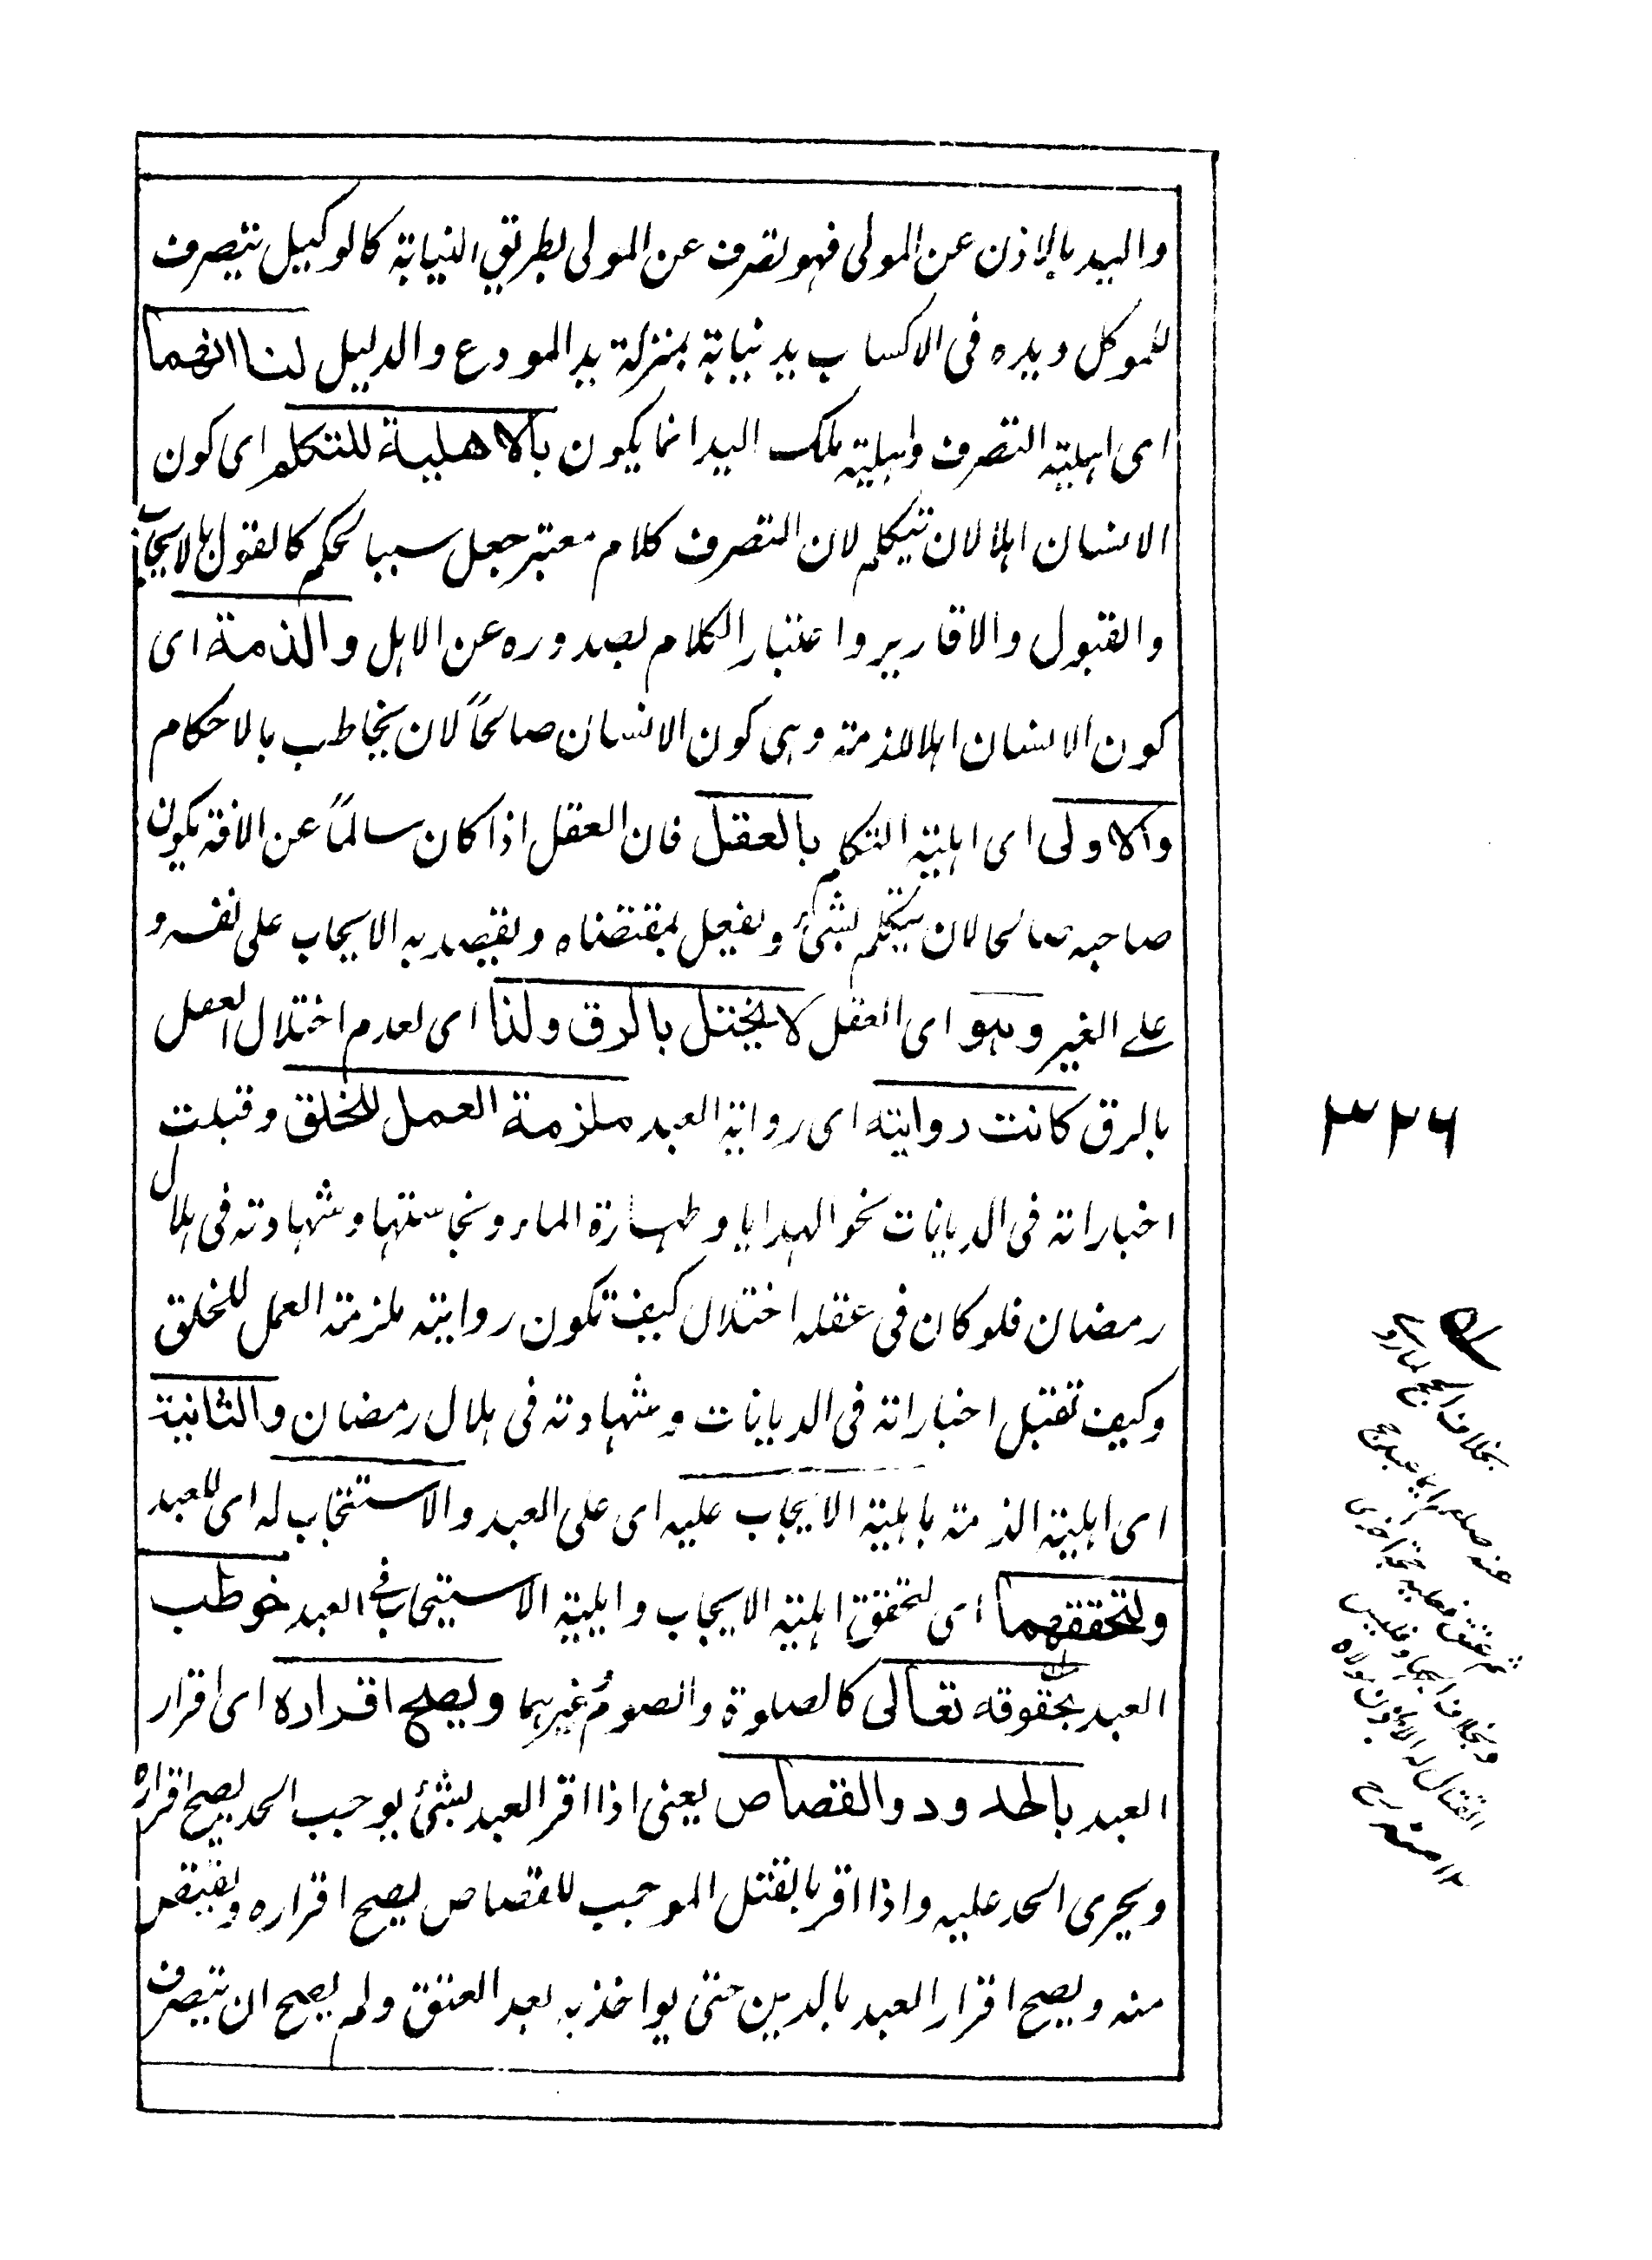 واليد بالاذن عن المولى فهو تصرف عن المولى بطريق النيابة كالوكيل يتصرف
للموكل ويده فى الاكساب يد نيابة بمنزلة يد المودع والدليل لنا انهما
اى اهلية التصرف واهلية ملك اليد انما يكون بالاهلية للتكلم اى كون
الانسان اهلا لان يتكلم لان التصرف كلام معتبر جعل سببا لحكم كالقول بالايجاب
والقبول والاقارير واعتبار الكلام بصدوره عن الاهل والذمة اى
كون الانسان اهلا للذمة وهى كون الانسان صالحاً لان يخاطب بالاحكام
والاولى اى اهلية التكلم بالعقل فان العقل اذا كان سالماً عن الافة يكون
صاحبه صالحا لان يتكلم بشئ ويفعل بمقتضاه ويقصد به الايجاب على نفسه و
على الغير وهو اى العقل لا يختل بالرق ولذا اى لعدم اختلال العقل
بالرق كانت روايته اى رواية العبد ملزمة العمل للخلق وقبلت
اخباراته فى الديانات نحو الهدايا وطهارة الماء ونجاستها وشهادته فى هلال
رمضان فلو كان فى عقله اختلال كيف تكون روايته ملزمة العمل للخلق
وكيف تقبل اخباراته فى الديانات وشهادته فى هلال رمضان والثانية
اى اهلية الذمة باهلية الايجاب عليه اى على العبد والاستيجاب له اى للعبد
ولتحققهما اى لتحقق اهلية الايجاب واهلية الاستيجاب فى العبد خوطب
العبد بحقوقه تعالى كالصلوة والصوم وغيرهما ويصح اقراره اى اقرار
العبد بالحدود والقصاص يعنى اذا اقر العبد بشئ يوجب الحد يصح اقراره
ويجرى الحد عليه واذا اقر بالقتل الموجب للقصاص يصح اقراره ويقتص
منه ويصح اقرار العبد بالدين حتى يواخذ به بعد العتق ولم يصح ان يتصرف
٣٢٦
بخلاف الحج لما روى
عنه صلعم ايما عبد حج
ثم عتق فعليه حجة اخرى
وبخلاف الجهاد فليس
القتال له الا باذن مولاه
١٢ منه رح